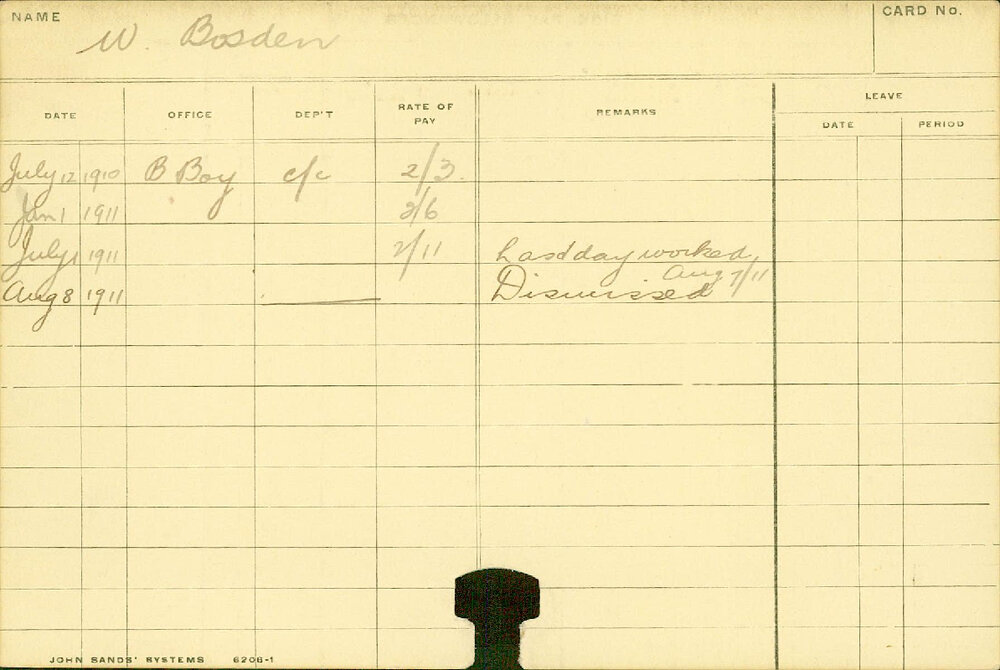 NAME
W. Bosden
CARD No.
DATE OFFICE DEP'T RATE OF PAY REMARKS LEAVE
DATE PERIOD
July 12 1910 B Boy c/c 2/3.
Jan 1 1911 2/6
July 1 1911 2/11 Last day worked
Aug 7/11
Aug 8 1911 Dismissed
JOHN SANDS' SYSTEMS 6206-1